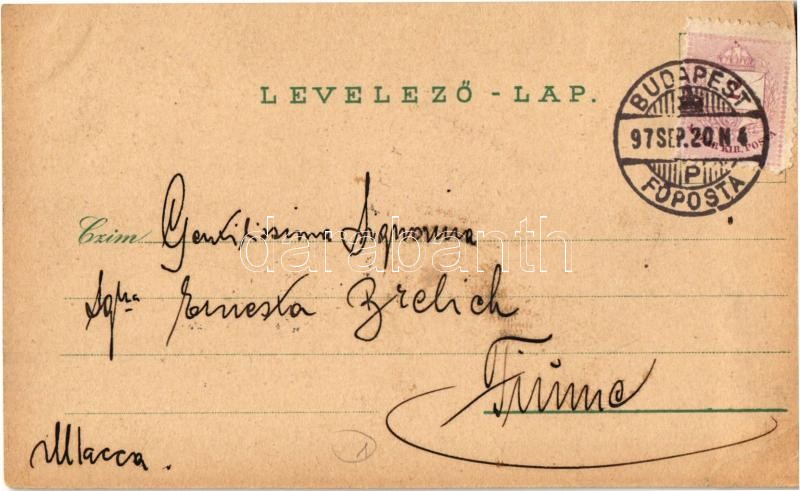 LEVELEZŐ - LAP.
BUDAPEST
97 SEP. 20. N 4
P
FŐPOSTA
KIR. POSTA
Czim
Gentilissima Signorina
Sgna Ernesta Brelich
Fiume
darabanth